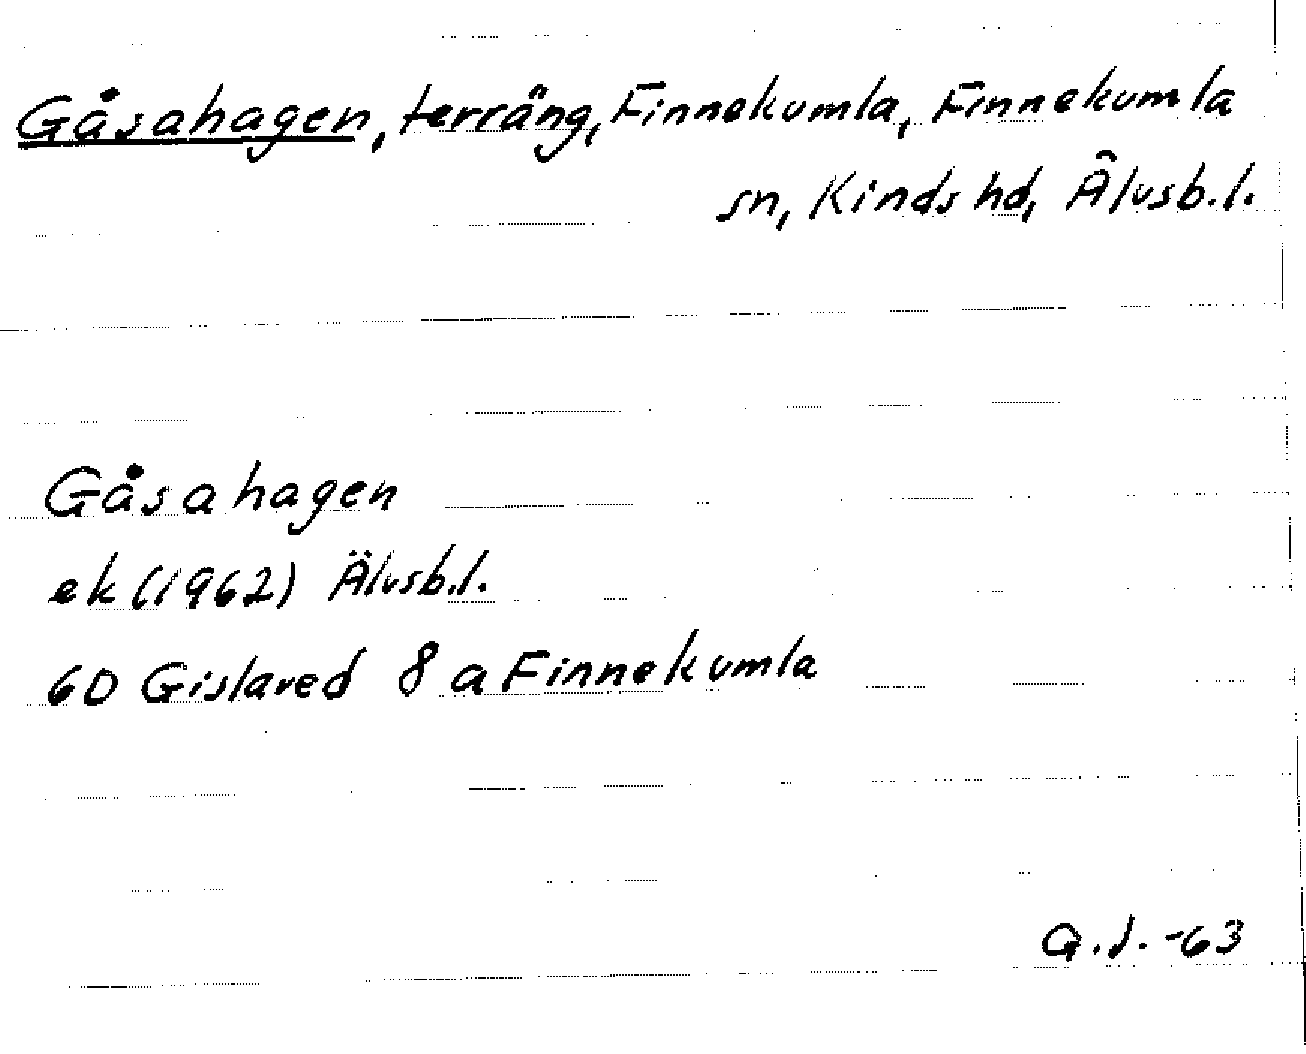 Gåsahagen, terräng, Finnekumla, Finnekumla
sn, Kinds hd, Älvsb.l.
Gåsahagen
ek (1962) Älvsb.l.
6D Gislaved 8 a Finnekumla
G.J. -63